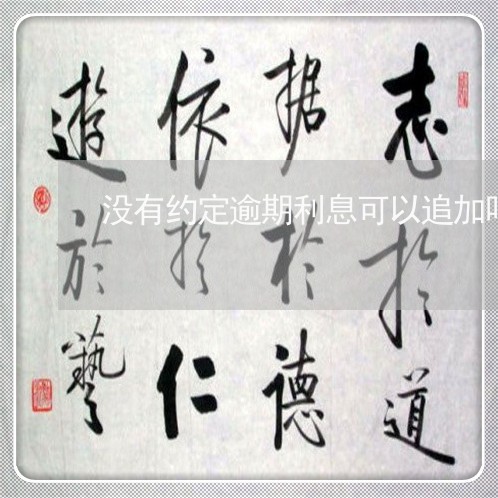 志於道
据於德
依於仁
遊於藝
没有约定逾期利息可以追加